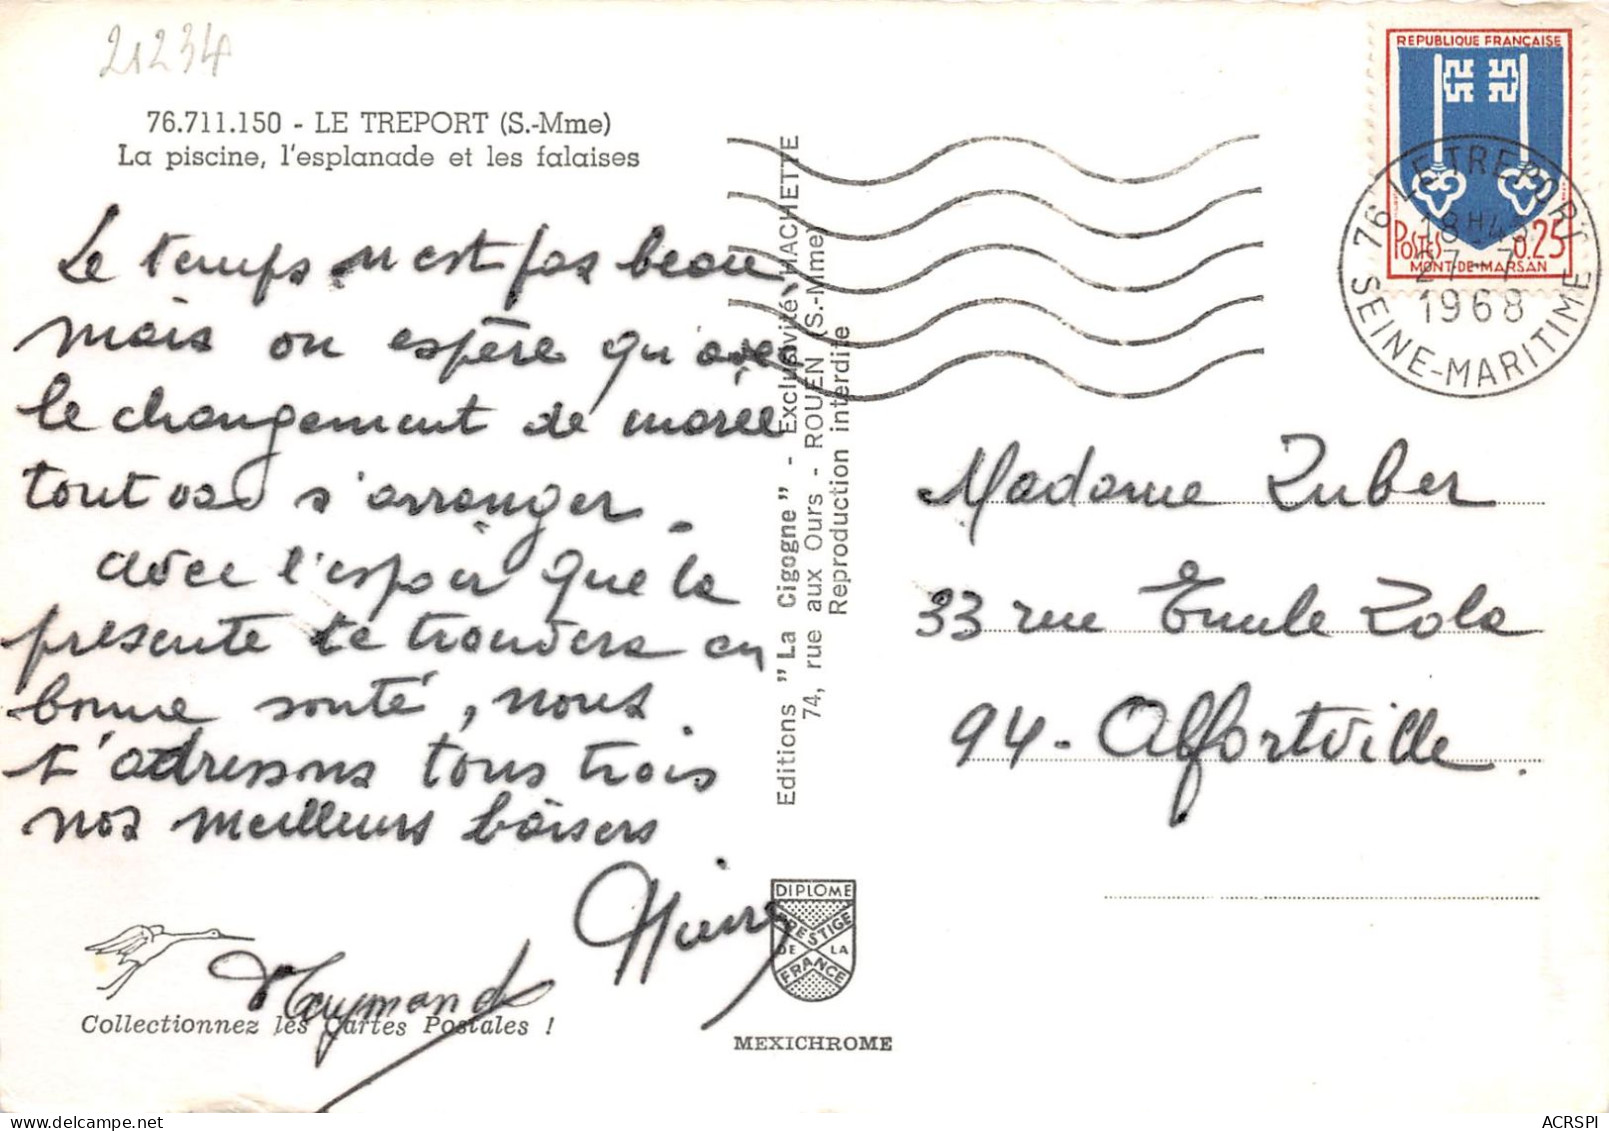 21234
76.711.150 - LE TREPORT (S.-Mme)
La piscine, l'esplanade et les falaises
Le temps n'est pas beau,
mais on espère qu'avec
le changement de marée
tout va s'arranger.
avec l'espoir que la
présente te trouvera en
bonne santé, nous
t'adressons tous trois
nos meilleurs baisers
Pierre
Raymonde
Collectionnez les Cartes Postales !
Editions "La Cigogne" - Exclusivité HACHETTE
74, rue aux Ours - ROUEN (S.-Mme)
Reproduction interdite
DIPLOME
PRESTIGE
DE LA
FRANCE
MEXICHROME
REPUBLIQUE FRANÇAISE
POSTES 0.25
MONT-DE-MARSAN
76 LE TREPORT
18H45
27-7
1968
SEINE-MARITIME
Madame Zuber
33 rue Emile Zola
94 - Alfortville.
ACRSPI